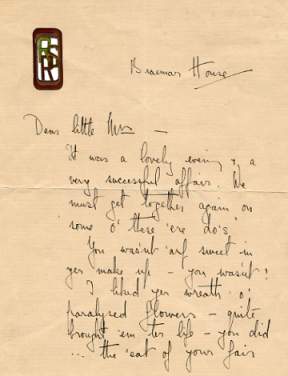 Braemar House
Dear little Mrs —
It was a lovely evening & a
very successful affair. We
must get together again on
some o' these 'ere do's'
You wasn't 'arf sweet in
yer make up – you wasn't!
I liked yer wreath o'
paralysed flowers – quite
brought 'em ter life – you did
... the 'eat of your fair